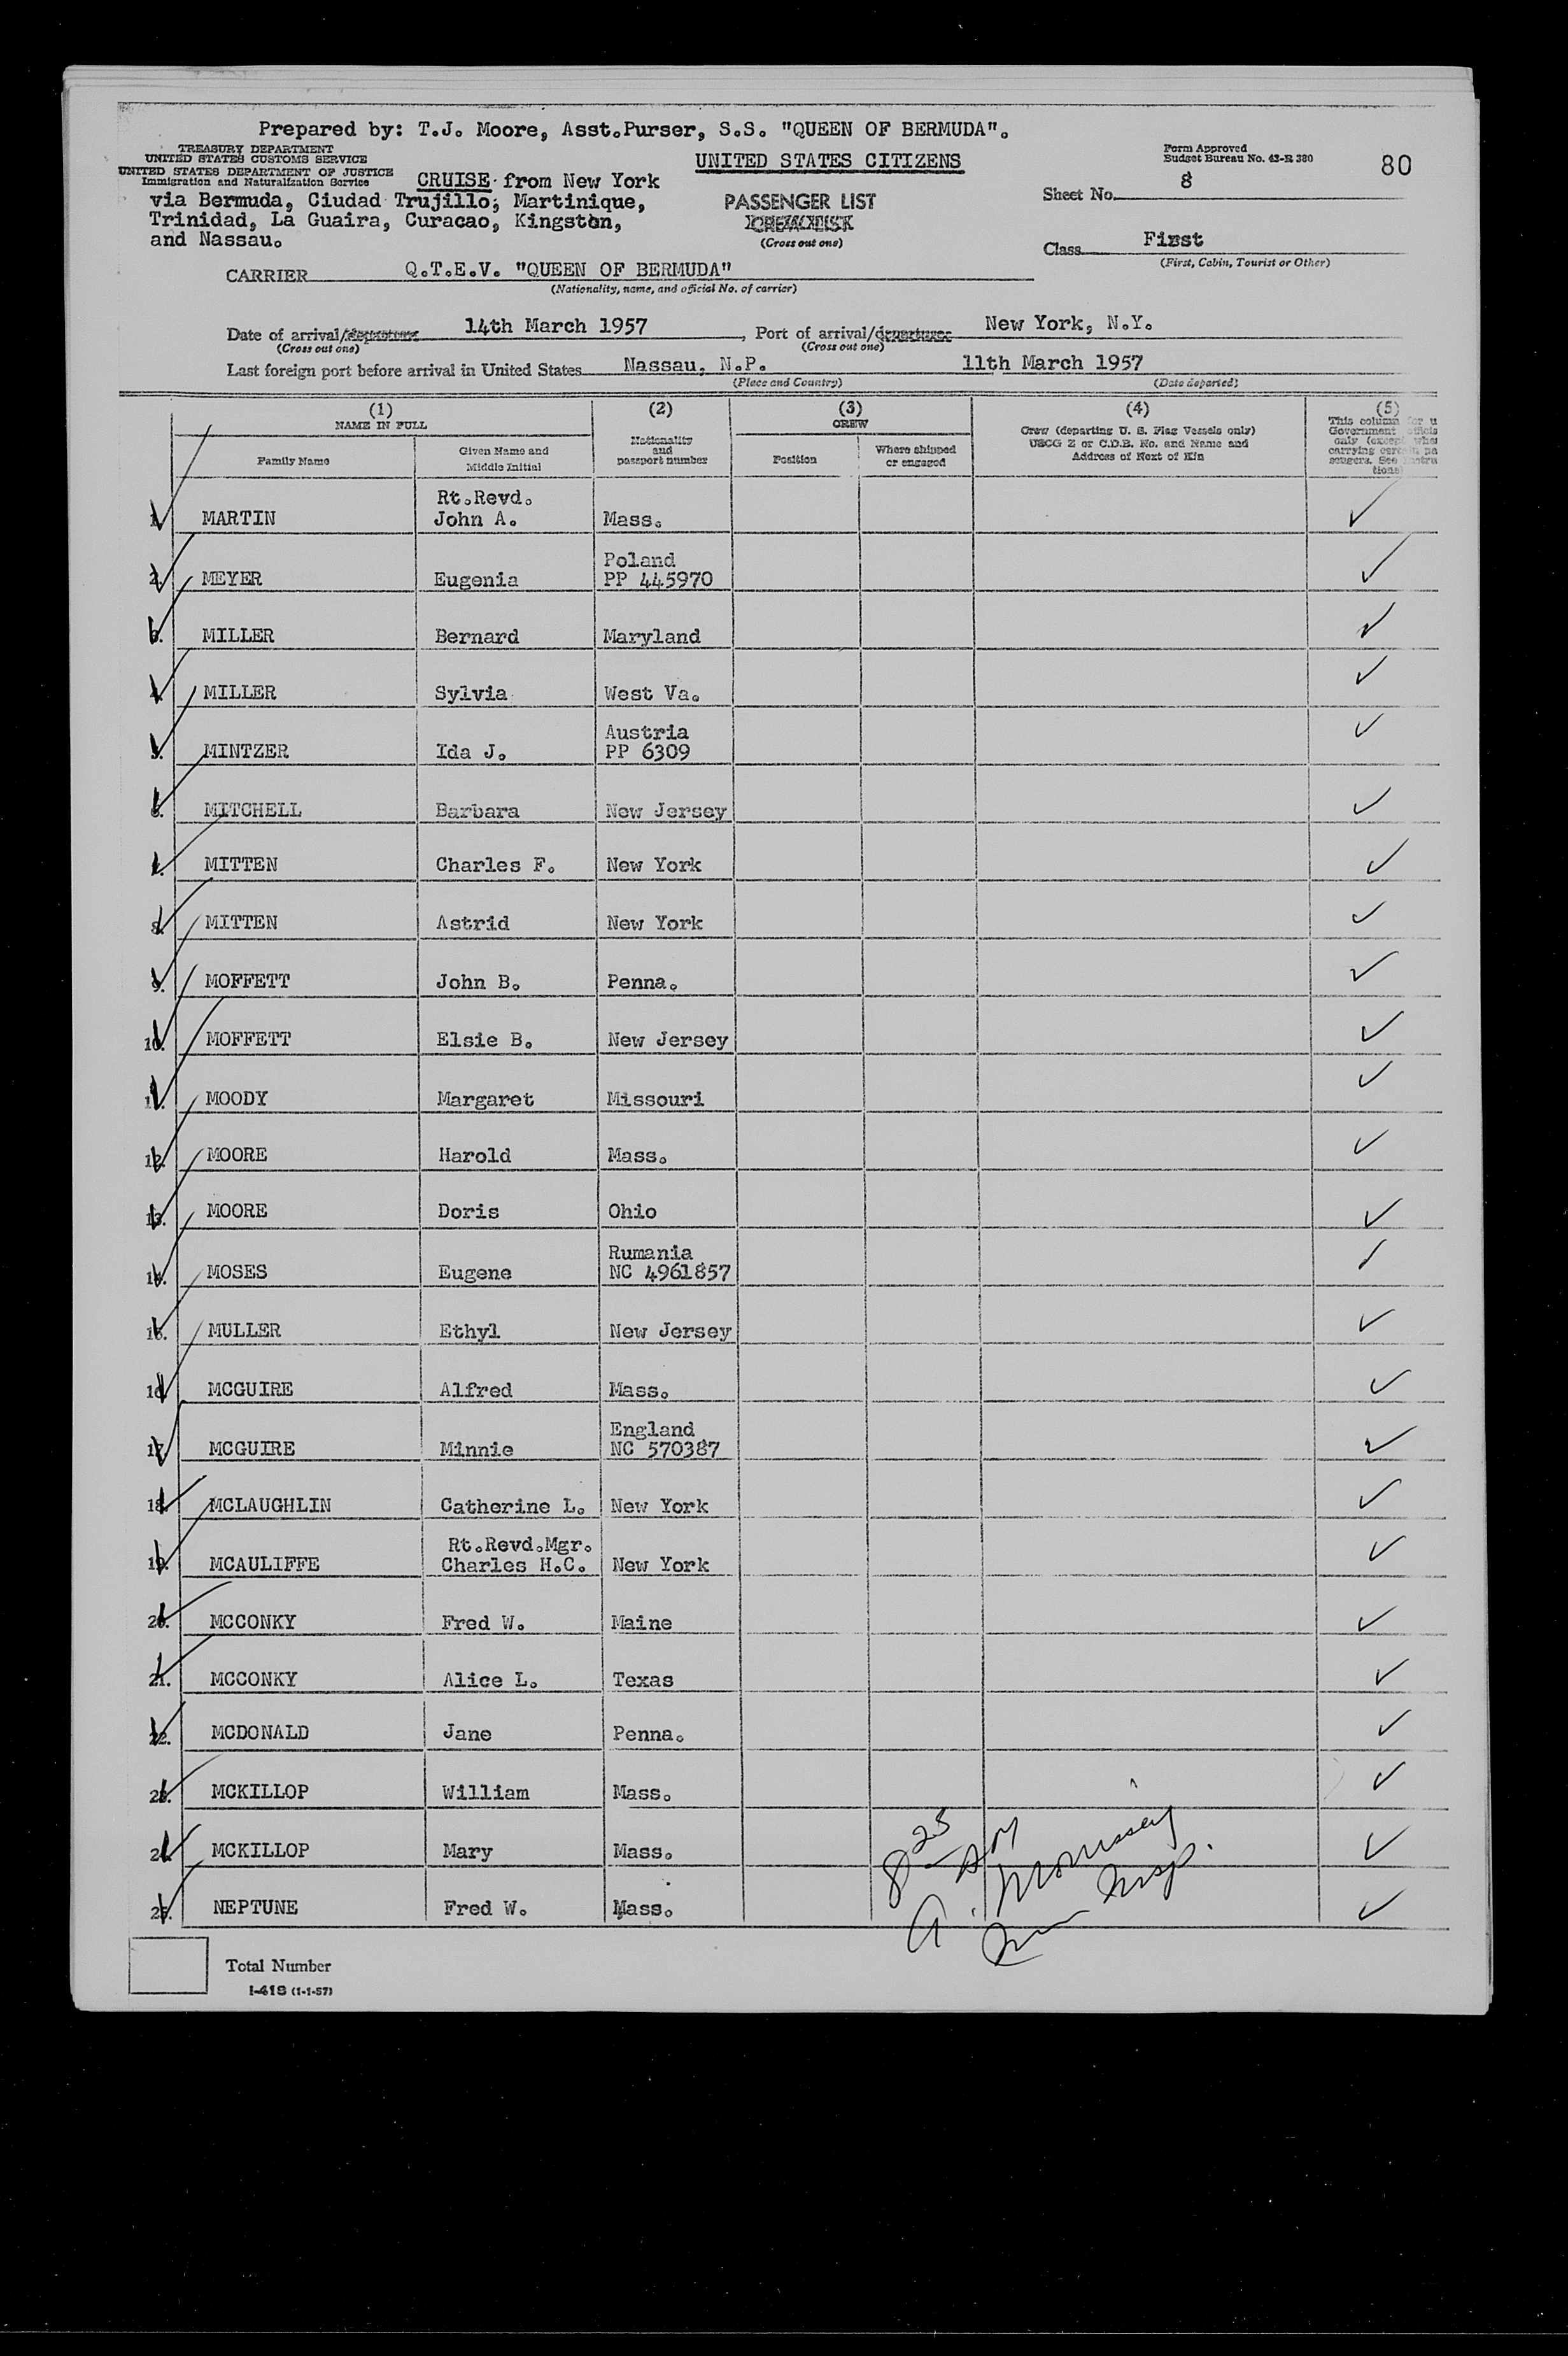 Prepared by: T.J. Moore, Asst.Purser, S.S. "QUEEN OF BERMUDA".
TREASURY DEPARTMENT
UNITED STATES CUSTOMS SERVICE
UNITED STATES DEPARTMENT OF JUSTICE
Immigration and Naturalization Service
UNITED STATES CITIZENS
Form Approved
Budget Bureau No. 43-R 380
80
CRUISE from New York
via Bermuda, Ciudad Trujillo, Martinique,
Trinidad, La Guaira, Curacao, Kingston,
and Nassau.
PASSENGER LIST
CREW LIST
(Cross out one)
Sheet No. 8
Class First
(First, Cabin, Tourist or Other)
CARRIER Q.T.E.V. "QUEEN OF BERMUDA"
(Nationality, name, and official No. of carrier)
Date of arrival/departure 14th March 1957, Port of arrival/departure New York, N.Y.
(Cross out one) (Cross out one)
Last foreign port before arrival in United States Nassau, N.P. 11th March 1957
(Place and Country) (Date departed)
(1) (2) (3) (4) (5)
NAME IN FULL
Family Name
Given Name and
Middle Initial
Nationality
and
passport number
CREW
Position
Where shipped
or engaged
Crew (departing U. S. Flag Vessels only)
USCG Z or C.D.B. No. and Name and
Address of Next of Kin
This column for u
Government officis
only (except when
carrying certain pa
sengers. See Instru
tions)
Rt.Revd.
1. MARTIN John A. Mass.
Poland
2. MEYER Eugenia PP 445970
3. MILLER Bernard Maryland
4. MILLER Sylvia West Va.
Austria
5. MINTZER Ida J. PP 6309
6. MITCHELL Barbara New Jersey
7. MITTEN Charles F. New York
8. MITTEN Astrid New York
9. MOFFETT John B. Penna.
10. MOFFETT Elsie B. New Jersey
11. MOODY Margaret Missouri
12. MOORE Harold Mass.
13. MOORE Doris Ohio
Rumania
14. MOSES Eugene NC 4961857
15. MULLER Ethyl New Jersey
16. MCGUIRE Alfred Mass.
England
17. MCGUIRE Minnie NC 570387
18. MCLAUGHLIN Catherine L. New York
Rt.Revd.Mgr.
19. MCAULIFFE Charles H.C. New York
20. MCCONKY Fred W. Maine
21. MCCONKY Alice L. Texas
22. MCDONALD Jane Penna.
23. MCKILLOP William Mass.
24. MCKILLOP Mary Mass.
25. NEPTUNE Fred W. Mass.
Total Number
I-418 (1-1-57)